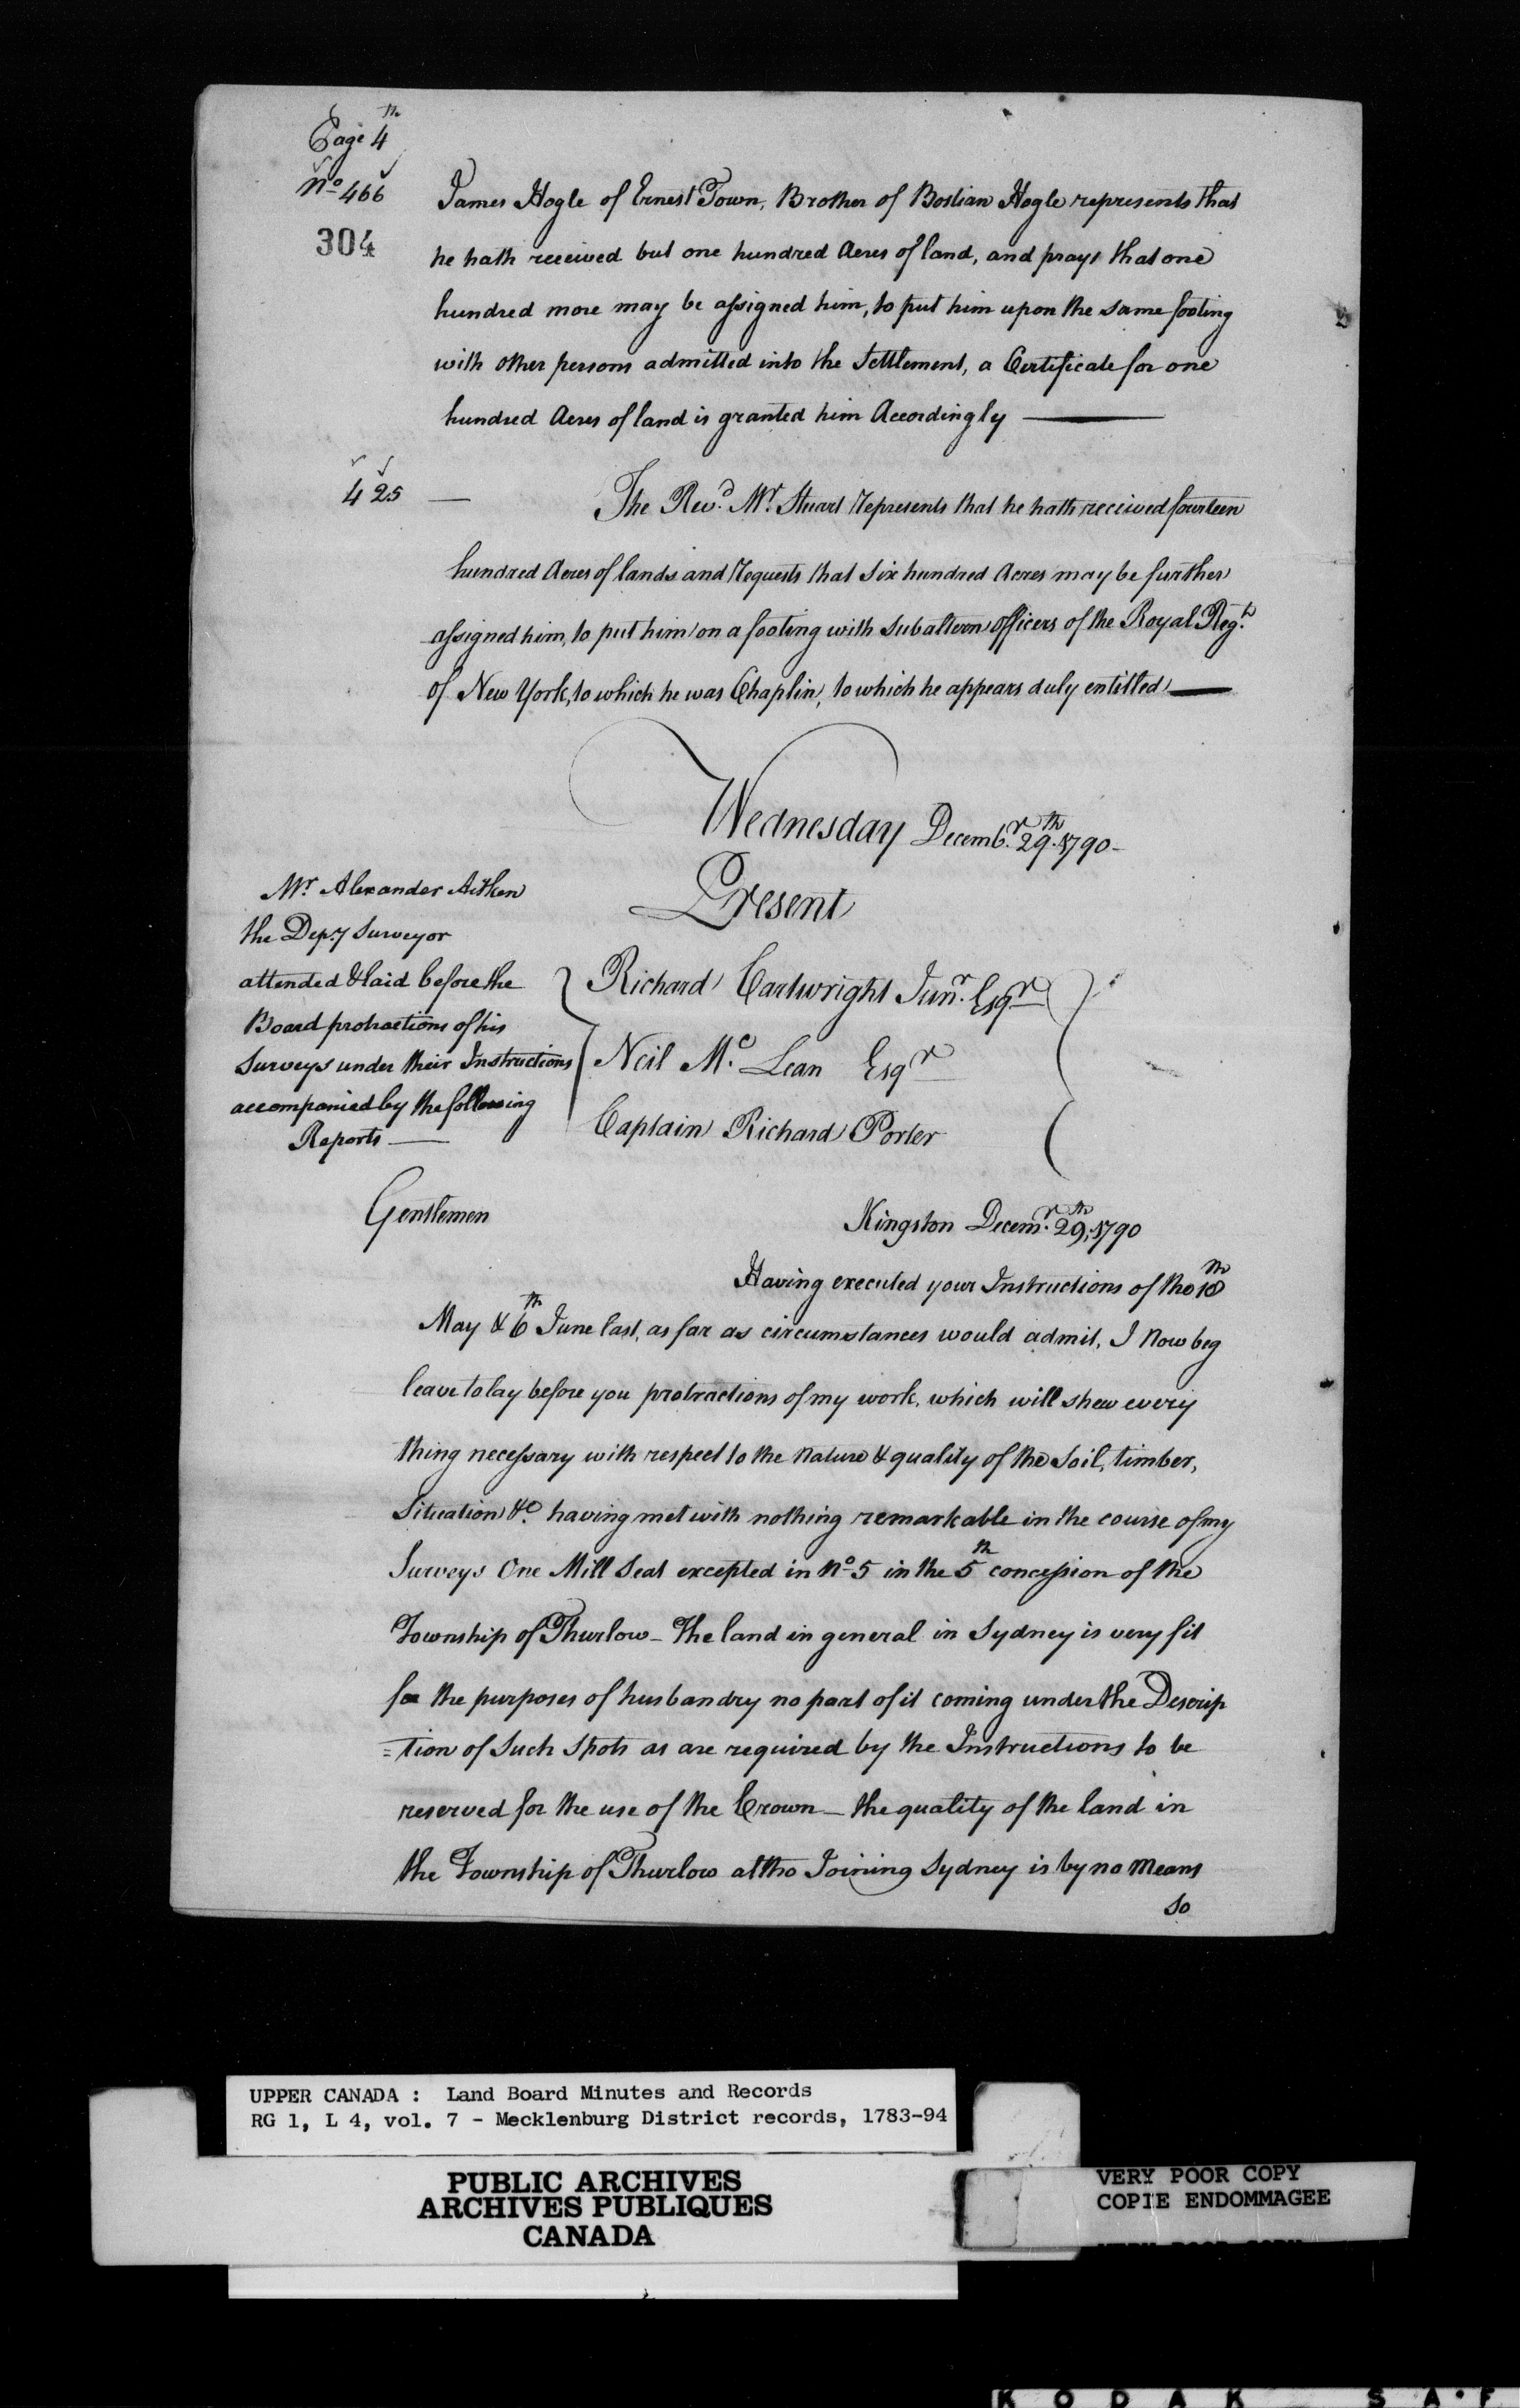 Page 4th
No 466
304
James Hogle of Ernest Town, Brother of Bostian Hogle represents that
he hath received but one hundred Acres of land, and prays that one
hundred more may be assigned him, to put him upon the same footing
with other persons admitted into the Settlement, a Certificate for one
hundred Acres of land is granted him Accordingly —
425 —
The Revd. Mr. Stuart represents that he hath received fourteen
hundred Acres of lands and requests that Six hundred Acres may be further
assigned him, to put him on a footing with subaltern officers of the Royal Regt.
of New York, to which he was Chaplin, to which he appears duly entitled —
Wednesday Decembr. 29th. 1790 -
Present
Mr. Alexander Aitken
the Depy. Surveyor
attended & laid before the
Board protractions of his
Surveys under their Instructions
accompanied by the following
Reports —
Richard Cartwright Junr. Esqr
Neil Mc. Lean Esqr
Captain Richard Porter
Gentlemen
Kingston Decemr. 29th, 1790
Having executed your Instructions of the 18th
May & 6th June last, as far as circumstances would admit, I now beg
leave to lay before you protractions of my work, which will shew every
thing necessary with respect to the nature & quality of the Soil, timber,
Situation &c. having met with nothing remarkable in the course of my
Surveys One Mill Seat excepted in No 5 in the 5th concession of the
Township of Thurlow - The land in general in Sydney is very fit
for the purposes of husbandry no part of it coming under the Descrip
=tion of Such Spots as are required by the Instructions to be
reserved for the use of the Crown - the quality of the land in
the Township of Thurlow altho Joining Sydney is by no means
so
UPPER CANADA : Land Board Minutes and Records
RG 1, L 4, vol. 7 - Mecklenburg District records, 1783-94
PUBLIC ARCHIVES
ARCHIVES PUBLIQUES
CANADA
VERY POOR COPY
COPIE ENDOMMAGEE
VERY POOR COPY
KODAK SAF